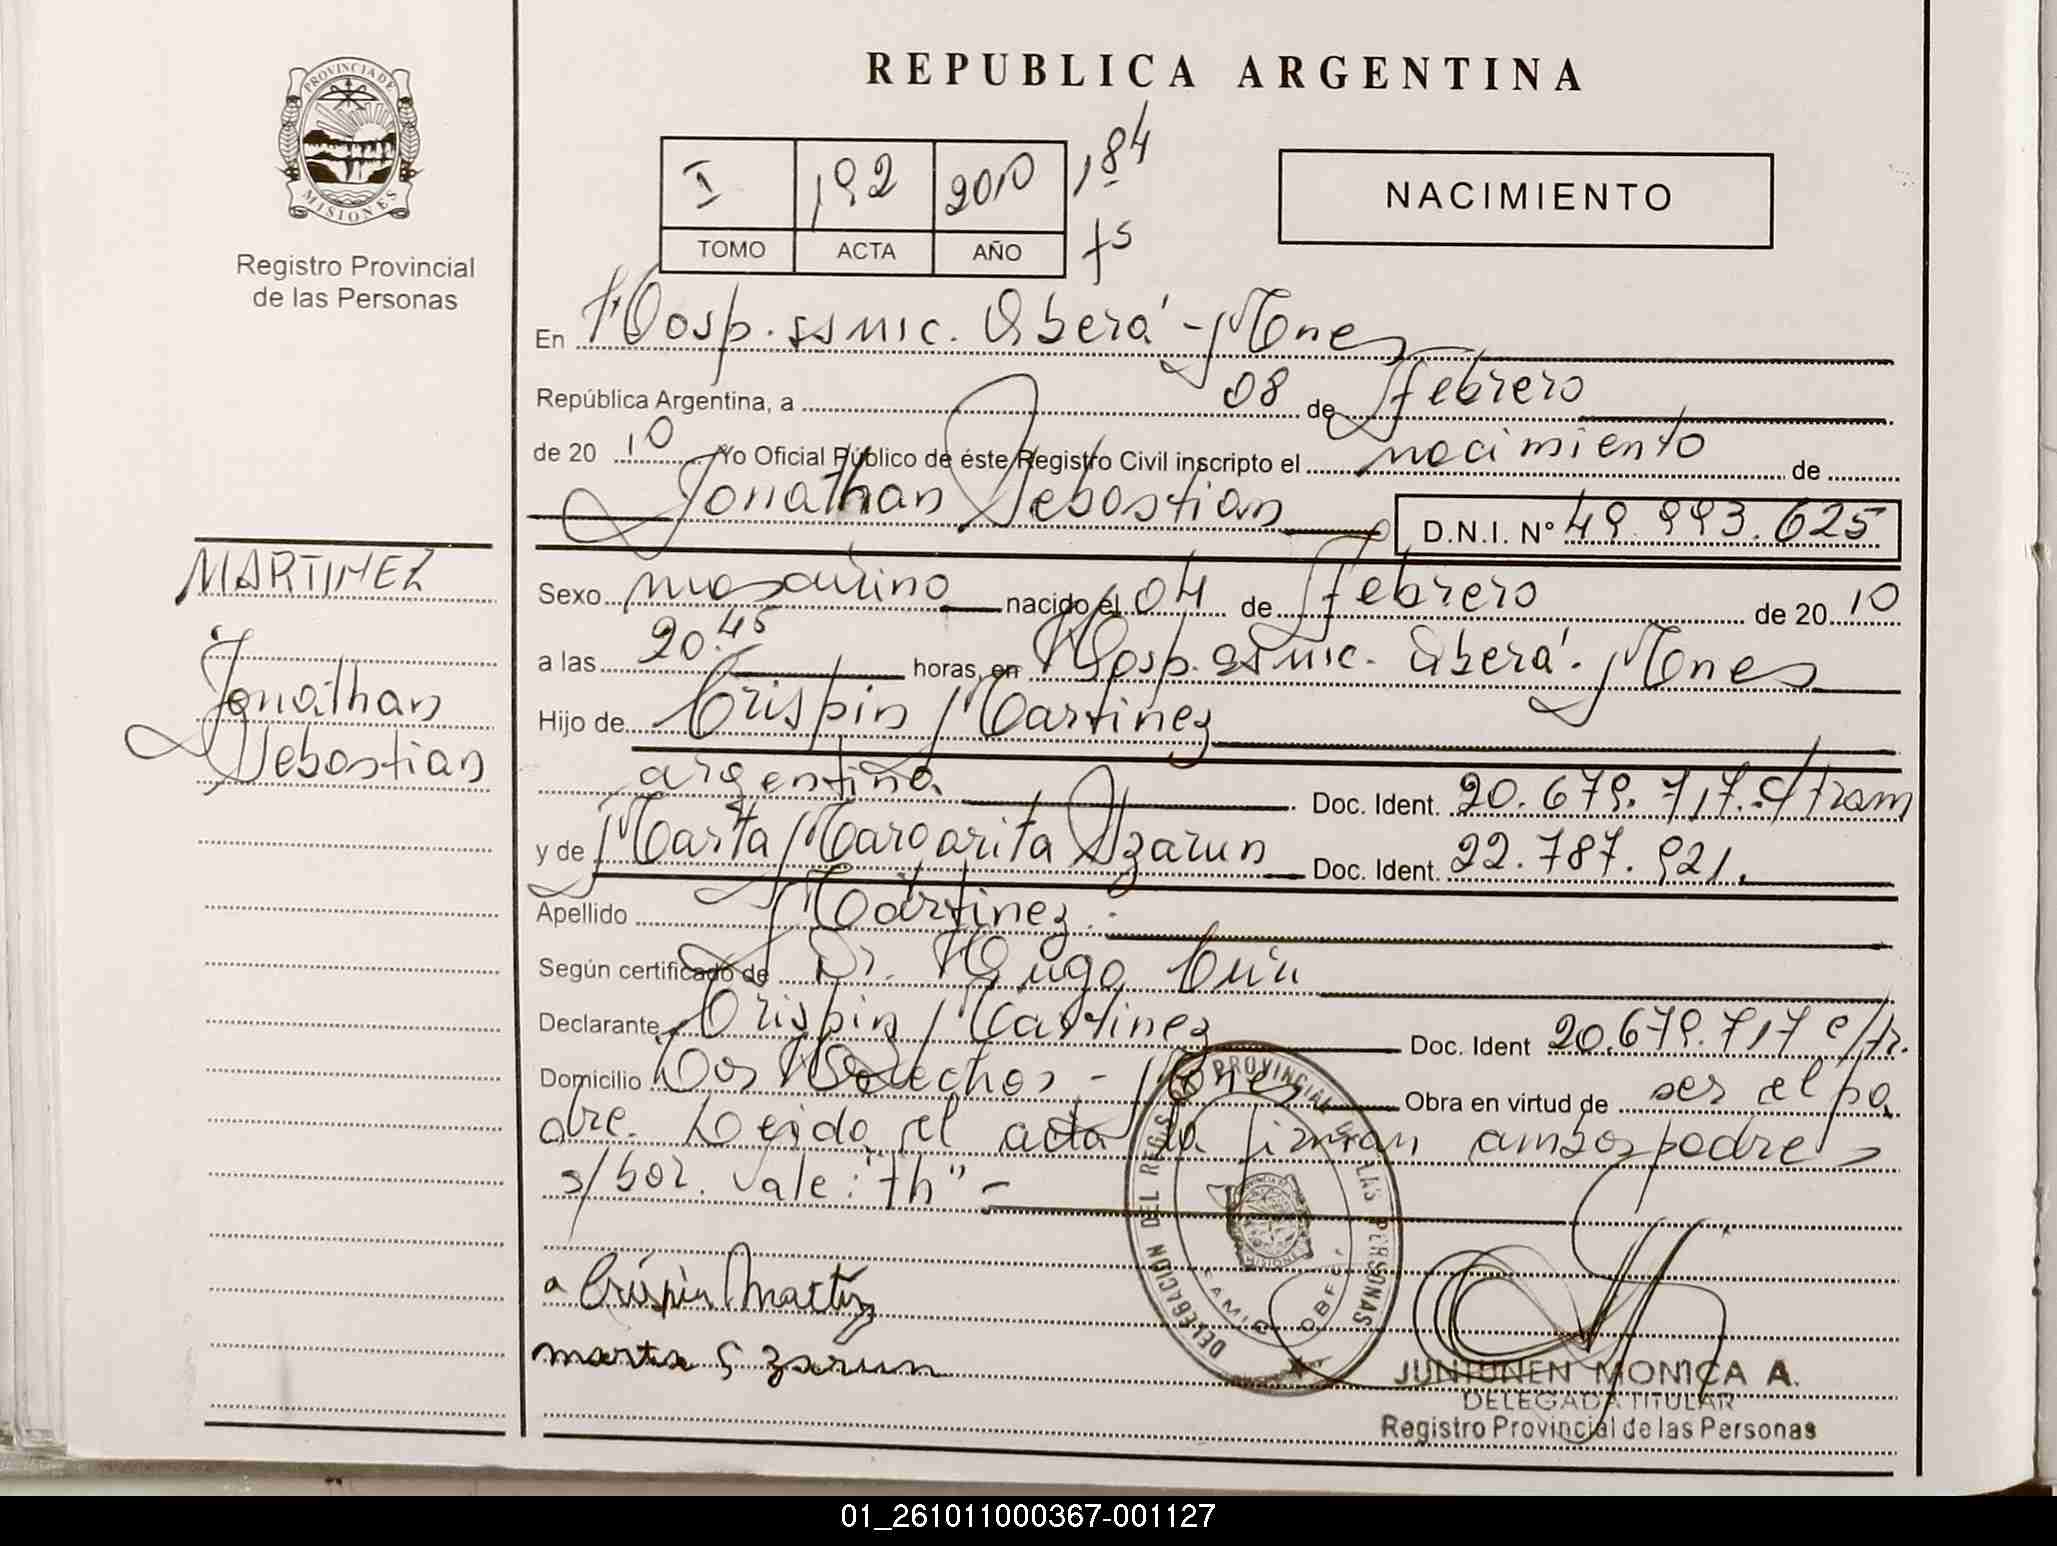 PROVINCIA DE
MISIONES
Registro Provincial
de las Personas
MARTINEZ
Jonathan
Sebastian
REPUBLICA ARGENTINA
I 192 2010 184
TOMO ACTA AÑO fs
NACIMIENTO
En Hosp. ssmic. Oberá - Mones
República Argentina, a 08 de febrero
de 20 10 Yo Oficial Público de éste Registro Civil inscripto el nacimiento de
Jonathan Sebastian D.N.I. Nº 49.993.625
Sexo masculino nacido el 04 de febrero de 20 10
a las 20.45 horas, en Hosp. ssmic. Oberá. Mones
Hijo de Crispin Martinez
argentino. Doc. Ident. 20.679.717. c/tram
y de Marta Margarita Szarun Doc. Ident. 22.787.921.
Apellido Martinez.
Según certificado de Dr. Hugo
Declarante Crispin Martinez Doc. Ident 20.679.717 c/tr.
Domicilio Dos Mones Obra en virtud de ser el pa
dre. Leida el acta la firman ambos padres
s/bor. vale: "th" -
a Crispin Martinez
marta Szarun
DELEGACION DEL REGISTRO PROVINCIAL DE LAS PERSONAS
JUNTUNEN MONICA A.
DELEGADA TITULAR
Registro Provincial de las Personas
01_261011000367-001127